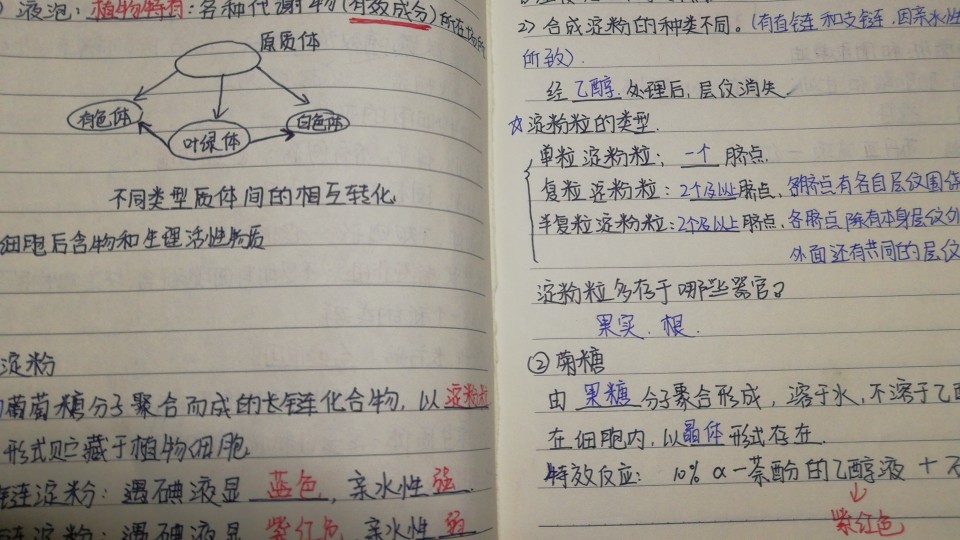 液泡：植物特有：各种代谢物(有效成分)所在场所
原质体
有色体
叶绿体
白色体
不同类型质体间的相互转化
细胞后含物和生理活性物质
淀粉
葡萄糖分子聚合而成的长链化合物，以淀粉粒
形式贮藏于植物细胞
链淀粉：遇碘液显 蓝色，亲水性 强
链淀粉：遇碘液显 紫红色 亲水性 弱
2) 合成淀粉的种类不同。(有直链和支链，因亲水性
所致)．
经 乙醇 处理后，层纹消失
☆淀粉粒的类型．
单粒淀粉粒：一个 脐点
复粒淀粉粒：2个及以上脐点，各脐点有各自层纹围绕
半复粒淀粉粒：2个及以上脐点，各脐点除有本身层纹外
外面还有共同的层纹
淀粉粒多存于哪些器官？
果实．根．
② 菊糖
由 果糖 分子聚合形成，溶于水，不溶于乙醇
在细胞内，以晶体形式存在．
特效反应：10% α-萘酚的乙醇液 +
紫红色